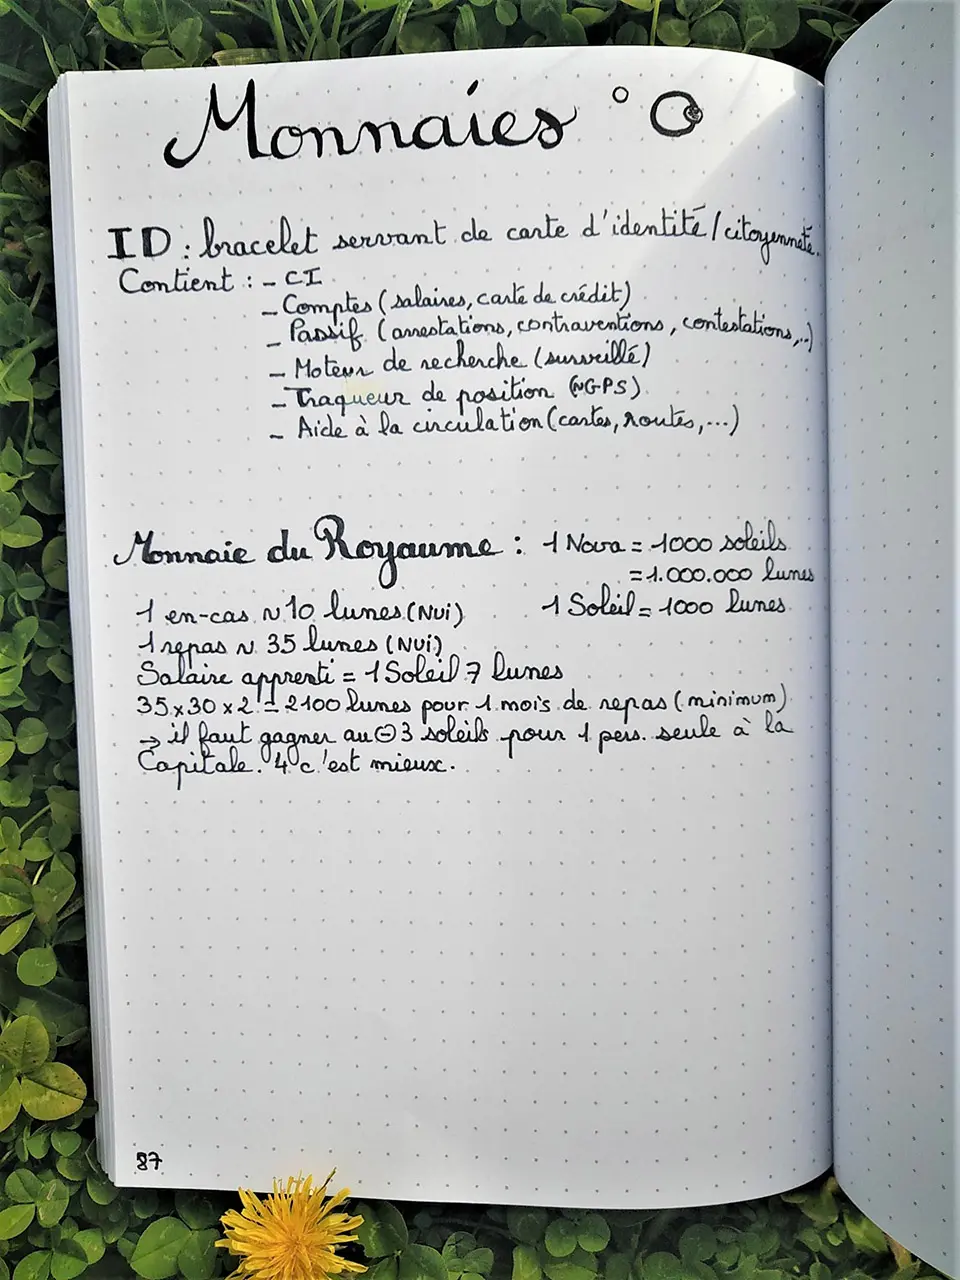 Monnaies
ID : bracelet servant de carte d'identité/citoyenneté.
Contient : - CI
- Comptes (salaires, carte de crédit)
- Passif (arrestations, contraventions, contestations,..)
- Moteur de recherche (surveillé)
- Traqueur de position (~GPS)
- Aide à la circulation (cartes, routes,...)
Monnaie du Royaume : 1 Nova = 1000 soleils
= 1.000.000 lunes
1 Soleil = 1000 lunes
1 en-cas ~ 10 lunes (Nui)
1 repas ~ 35 lunes (Nui)
Salaire apprenti = 1 Soleil 7 lunes
35x30x2 = 2100 lunes pour 1 mois de repas (minimum)
→ il faut gagner au ⊖ 3 soleils pour 1 pers. seule à la
Capitale. 4 c'est mieux.
87